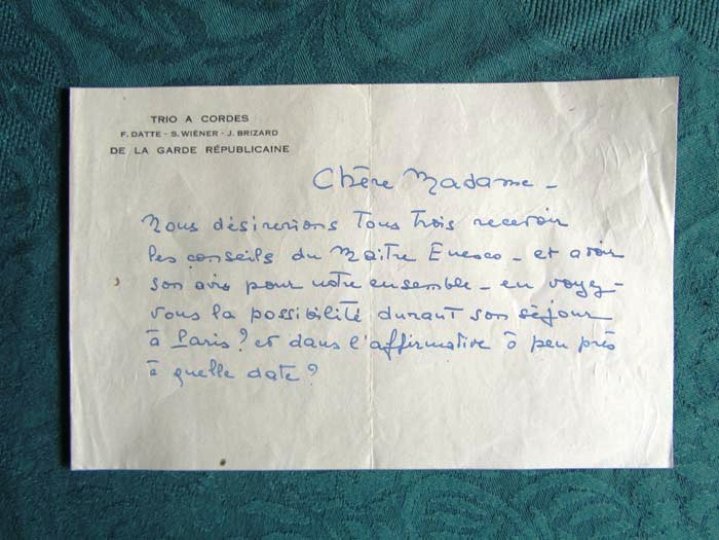 TRIO A CORDES
F. DATTE - S. WIÉNER - J. BRIZARD
DE LA GARDE RÉPUBLICAINE
Chère Madame -
Nous désirerions tous trois recevoir
les conseils du Maître Enesco - et avoir
son avis pour notre ensemble - en voyez-
vous la possibilité durant son séjour
à Paris? et dans l'affirmative à peu près
à quelle date?